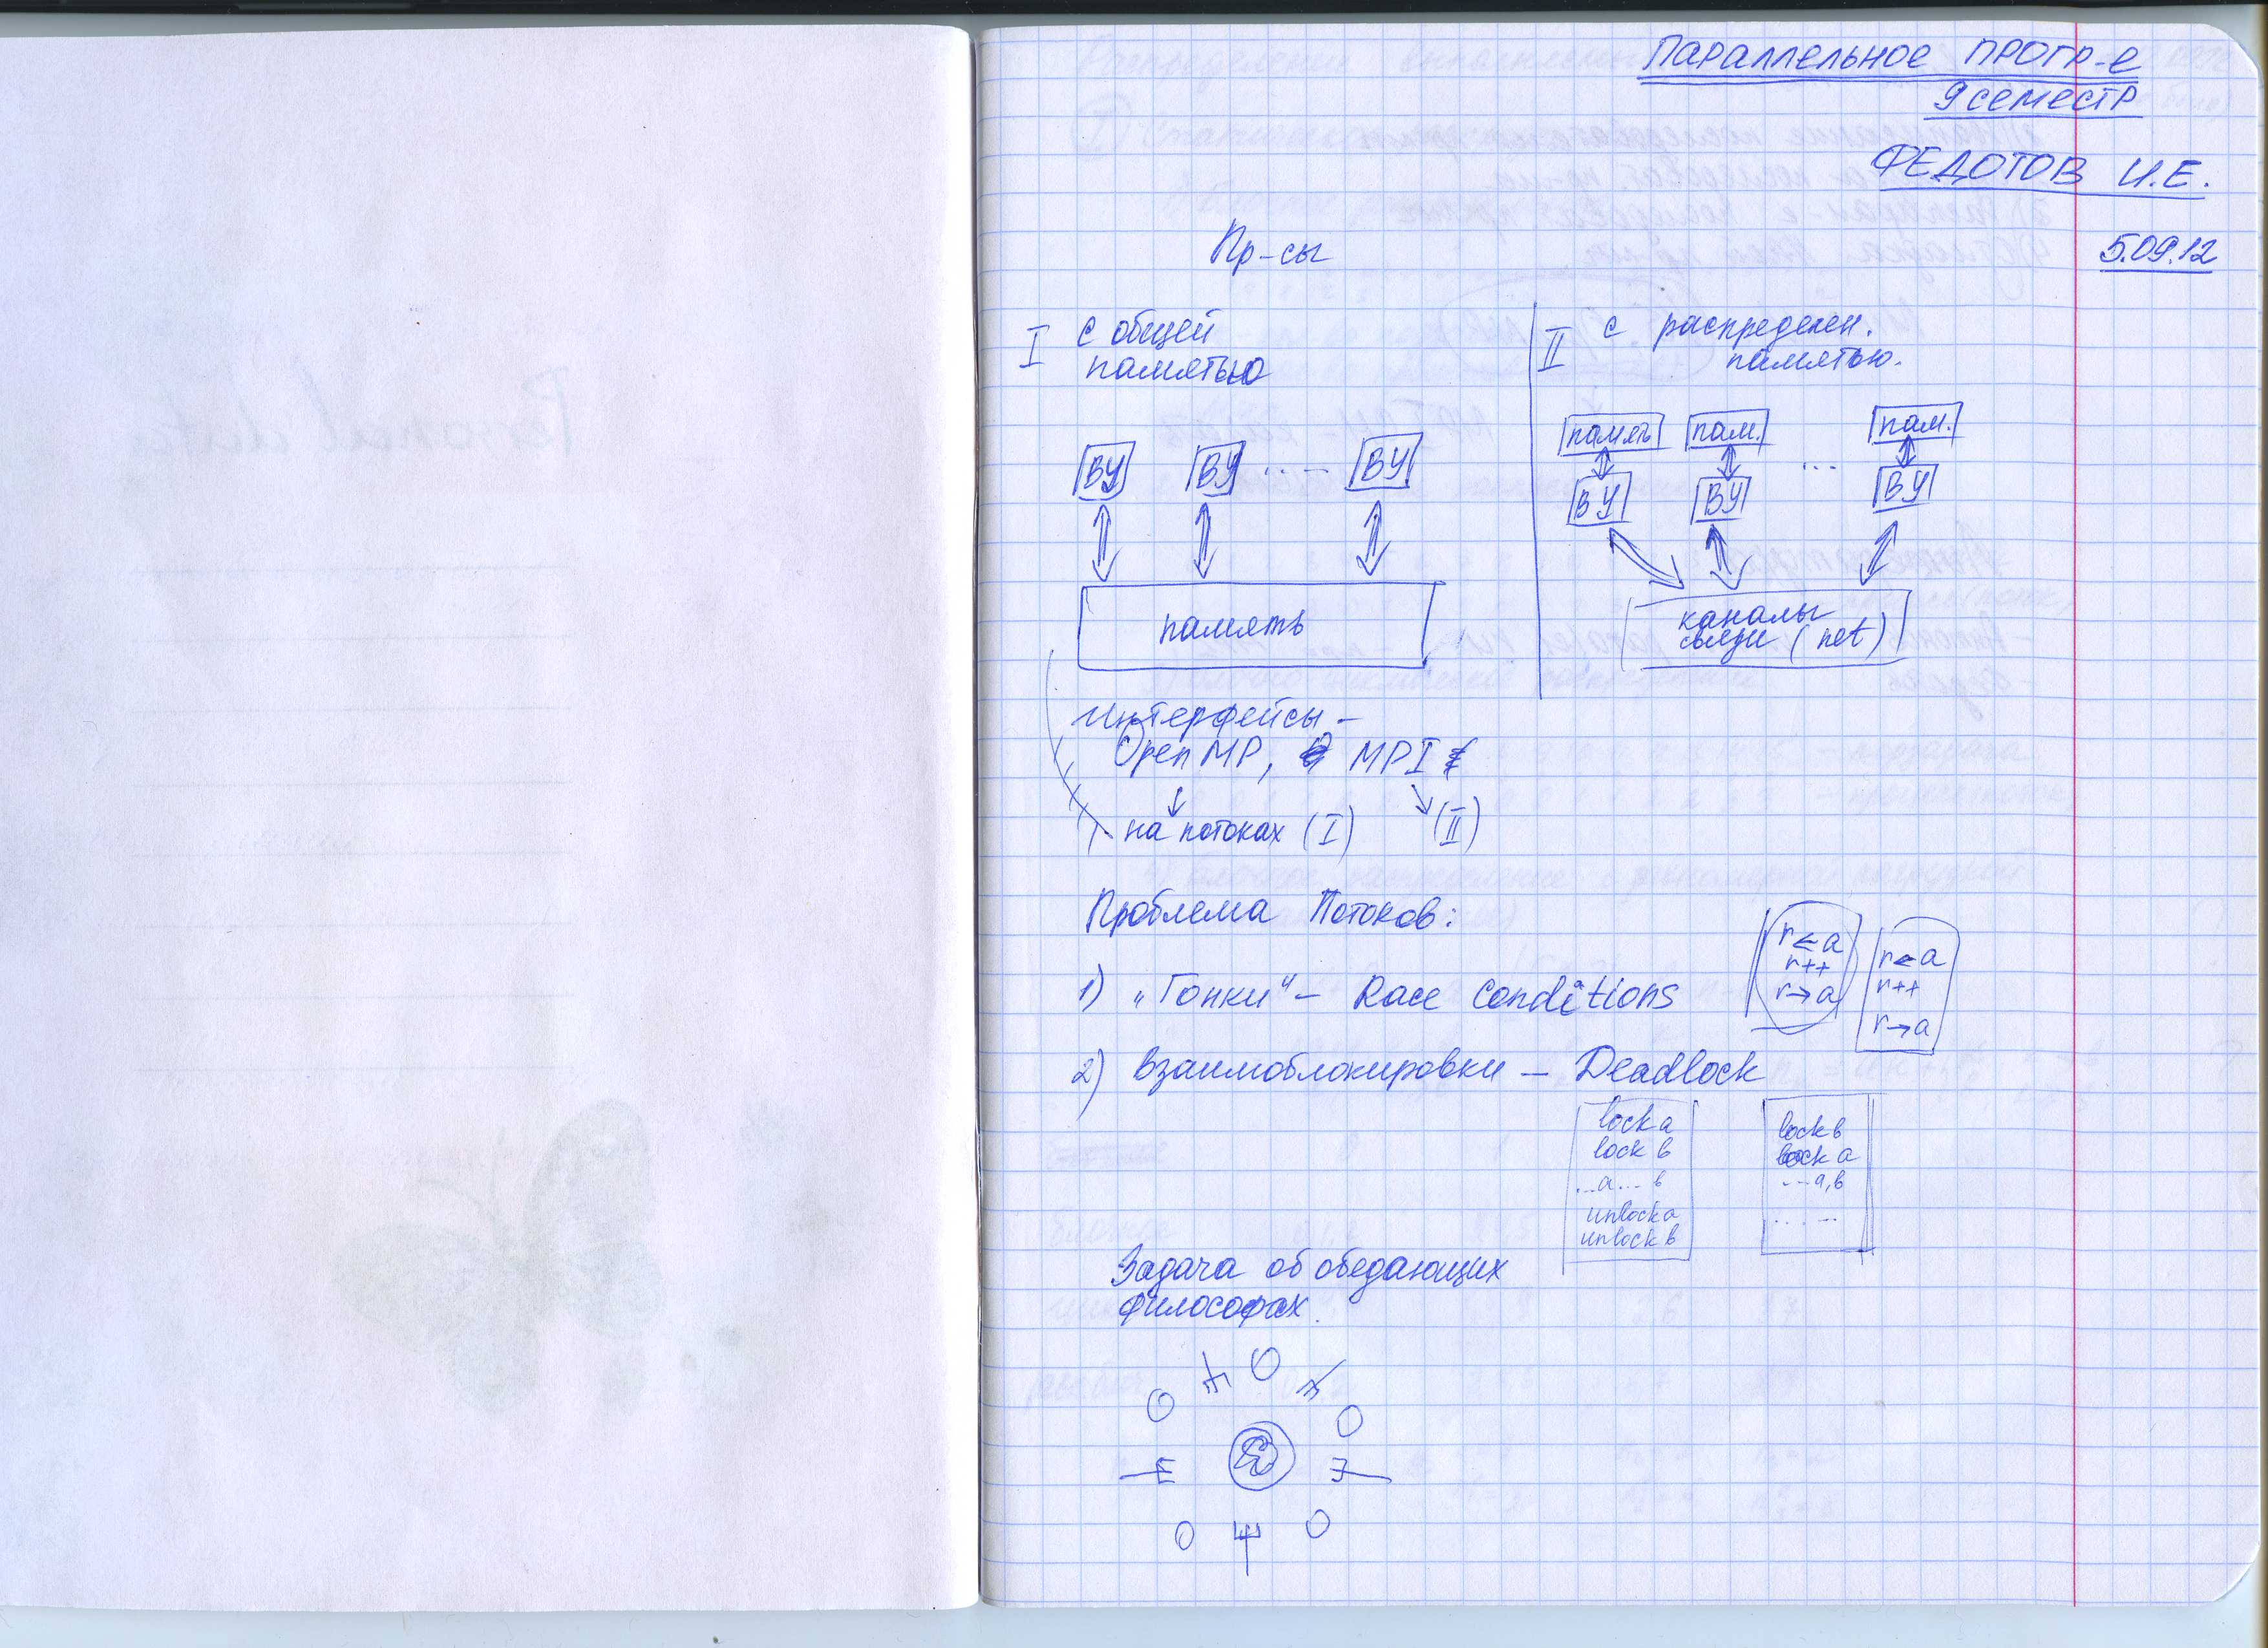 ПАРАЛЛЕЛЬНОЕ ПРОГР-е
9 семестр
ФЕДОТОВ И.Е.
5.09.12
Пр-сы
I с общей
памятью
ВУ ВУ ... ВУ
память
II с распределен.
памятью.
память пам. ... пам.
ВУ ВУ ВУ
каналы
связи (net)
Интерфейсы -
OpenMP, MPI
на потоках (I) (II)
Проблема Потоков:
1) „Гонки" - Race Conditions
r ← a
r++
r → a
r ← a
r++
r → a
2) Взаимоблокировки - Deadlock
lock a
lock b
...a... b
unlock a
unlock b
lock b
lock a
... a, b
... ...
Задача об обедающих
философах.